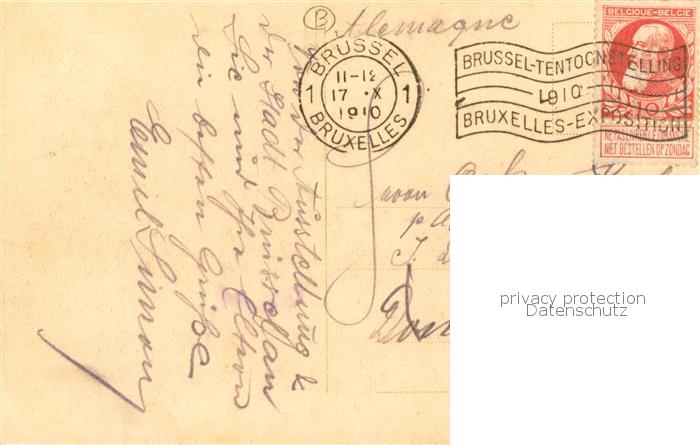 B
Alemagne
BRUSSEL
11-12
1 17 X 1
1910
BRUXELLES
BRUSSEL-TENTOONSTELLING
1910
BRUXELLES-EXPOSITION
BELGIQUE-BELGIË
10
NE PAS LIVRER LE DIMANCHE
NIET BESTELLEN OP ZONDAG
Von der Ausstellung &
der Stadt Brüssel an
Sie und Ihre Eltern
die besten Grüße
Emil Simon
privacy protection
Datenschutz